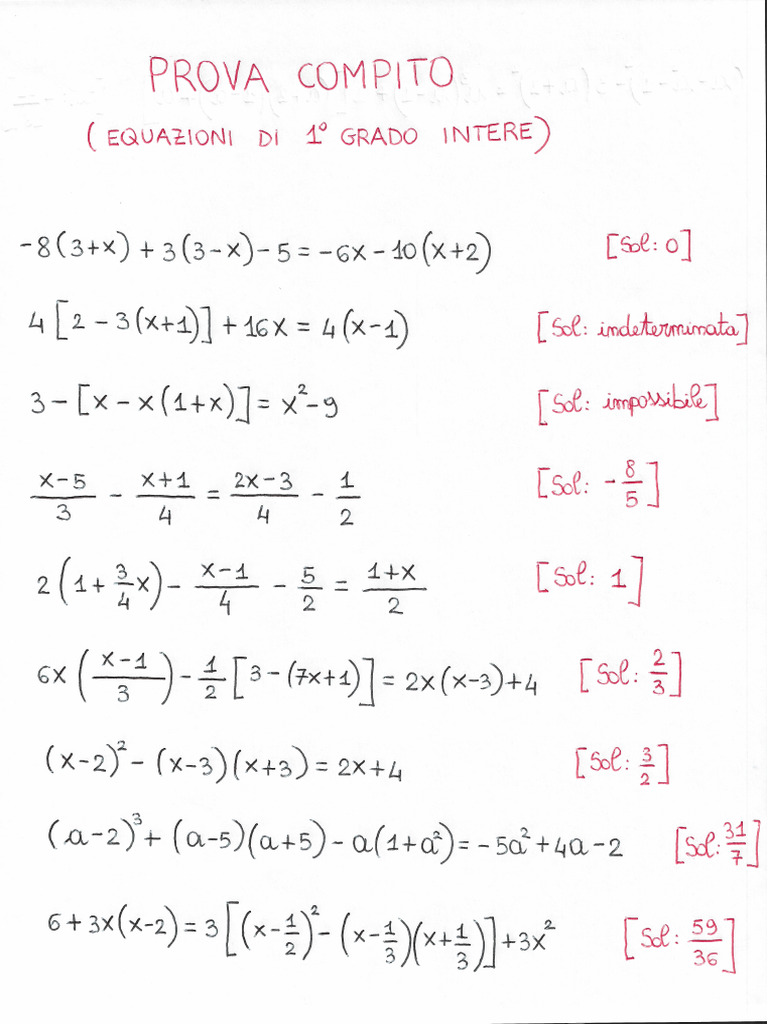 PROVA COMPITO
(EQUAZIONI DI 1° GRADO INTERE)
-8(3+x)+3(3-x)-5=-6x-10(x+2) [Sol: 0]
4[2-3(x+1)]+16x=4(x-1) [Sol: indeterminata]
3-[x-x(1+x)]=x²-9 [Sol: impossibile]
(x-5)/3 - (x+1)/4 = (2x-3)/4 - 1/2 [Sol: -8/5]
2(1+3/4x) - (x-1)/4 - 5/2 = (1+x)/2 [Sol: 1]
6x((x-1)/3) - 1/2[3-(7x+1)] = 2x(x-3)+4 [Sol: 2/3]
(x-2)²-(x-3)(x+3)=2x+4 [Sol: 3/2]
(a-2)³+(a-5)(a+5)-a(1+a²)=-5a²+4a-2 [Sol: 31/7]
6+3x(x-2)=3[(x-1/2)²-(x-1/3)(x+1/3)]+3x² [Sol: 59/36]